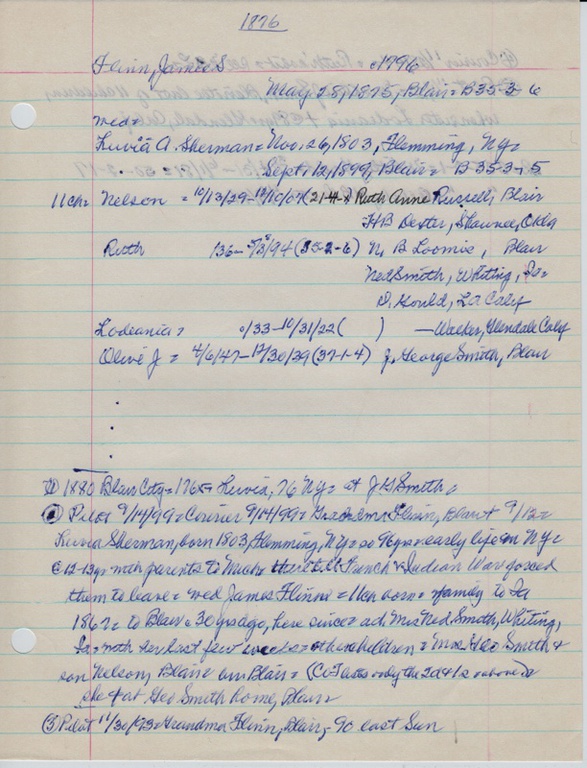 1876
Flinn, James S c1796
May 28, 1875, Blair = B 35-3-6
med =
Luvia A. Sherman = Nov. 26, 1803, Flemming, Ny =
Sept. 12, 1899, Blair = B 35-3-5
11 ch = Nelson = 10/13/29 - 12/10/07 (21-4- Ruth Anne Russell, Blair
HB Dexter, Shawnee, Okla
Ruth 136 - 94 (35-2-6) N, B Loomis, Blair
Ned Smith, Whiting, Ia =
D. Gould, La Calif
Lodeania = c/33 - 10/31/22 ( ) — Walker, Glendale Calif
Olive J = 4/6/47 - 12/30/39 (37-1-4) J, George Smith, Blair
1880 Blair City = 176 = Luvia, 76 Ny = at J G Smith =
Pilot 9/14/99 = Courier 9/14/99 = Flinn, Blair + 9/12 =
Luvia Sherman, born 1803, Flemming, Ny = so 96 yrs = early life in Ny =
c 12-13 yr with parents to French & Indian War forced
them to leave = wed James Flinn = 11 ch born = family to Ia
186 = to Blair c 30 yrs ago, here since = Mrs Ned Smith, Whiting,
Ia = with her last few weeks = other children = Mrs Geo Smith &
son Nelson, Blair = bur Blair = (Co only the 2d & 1
she + at Geo Smith home, Blair
(3) Pilot 11/30/93 = Grandma Flinn, Blair, - 90 last Sun